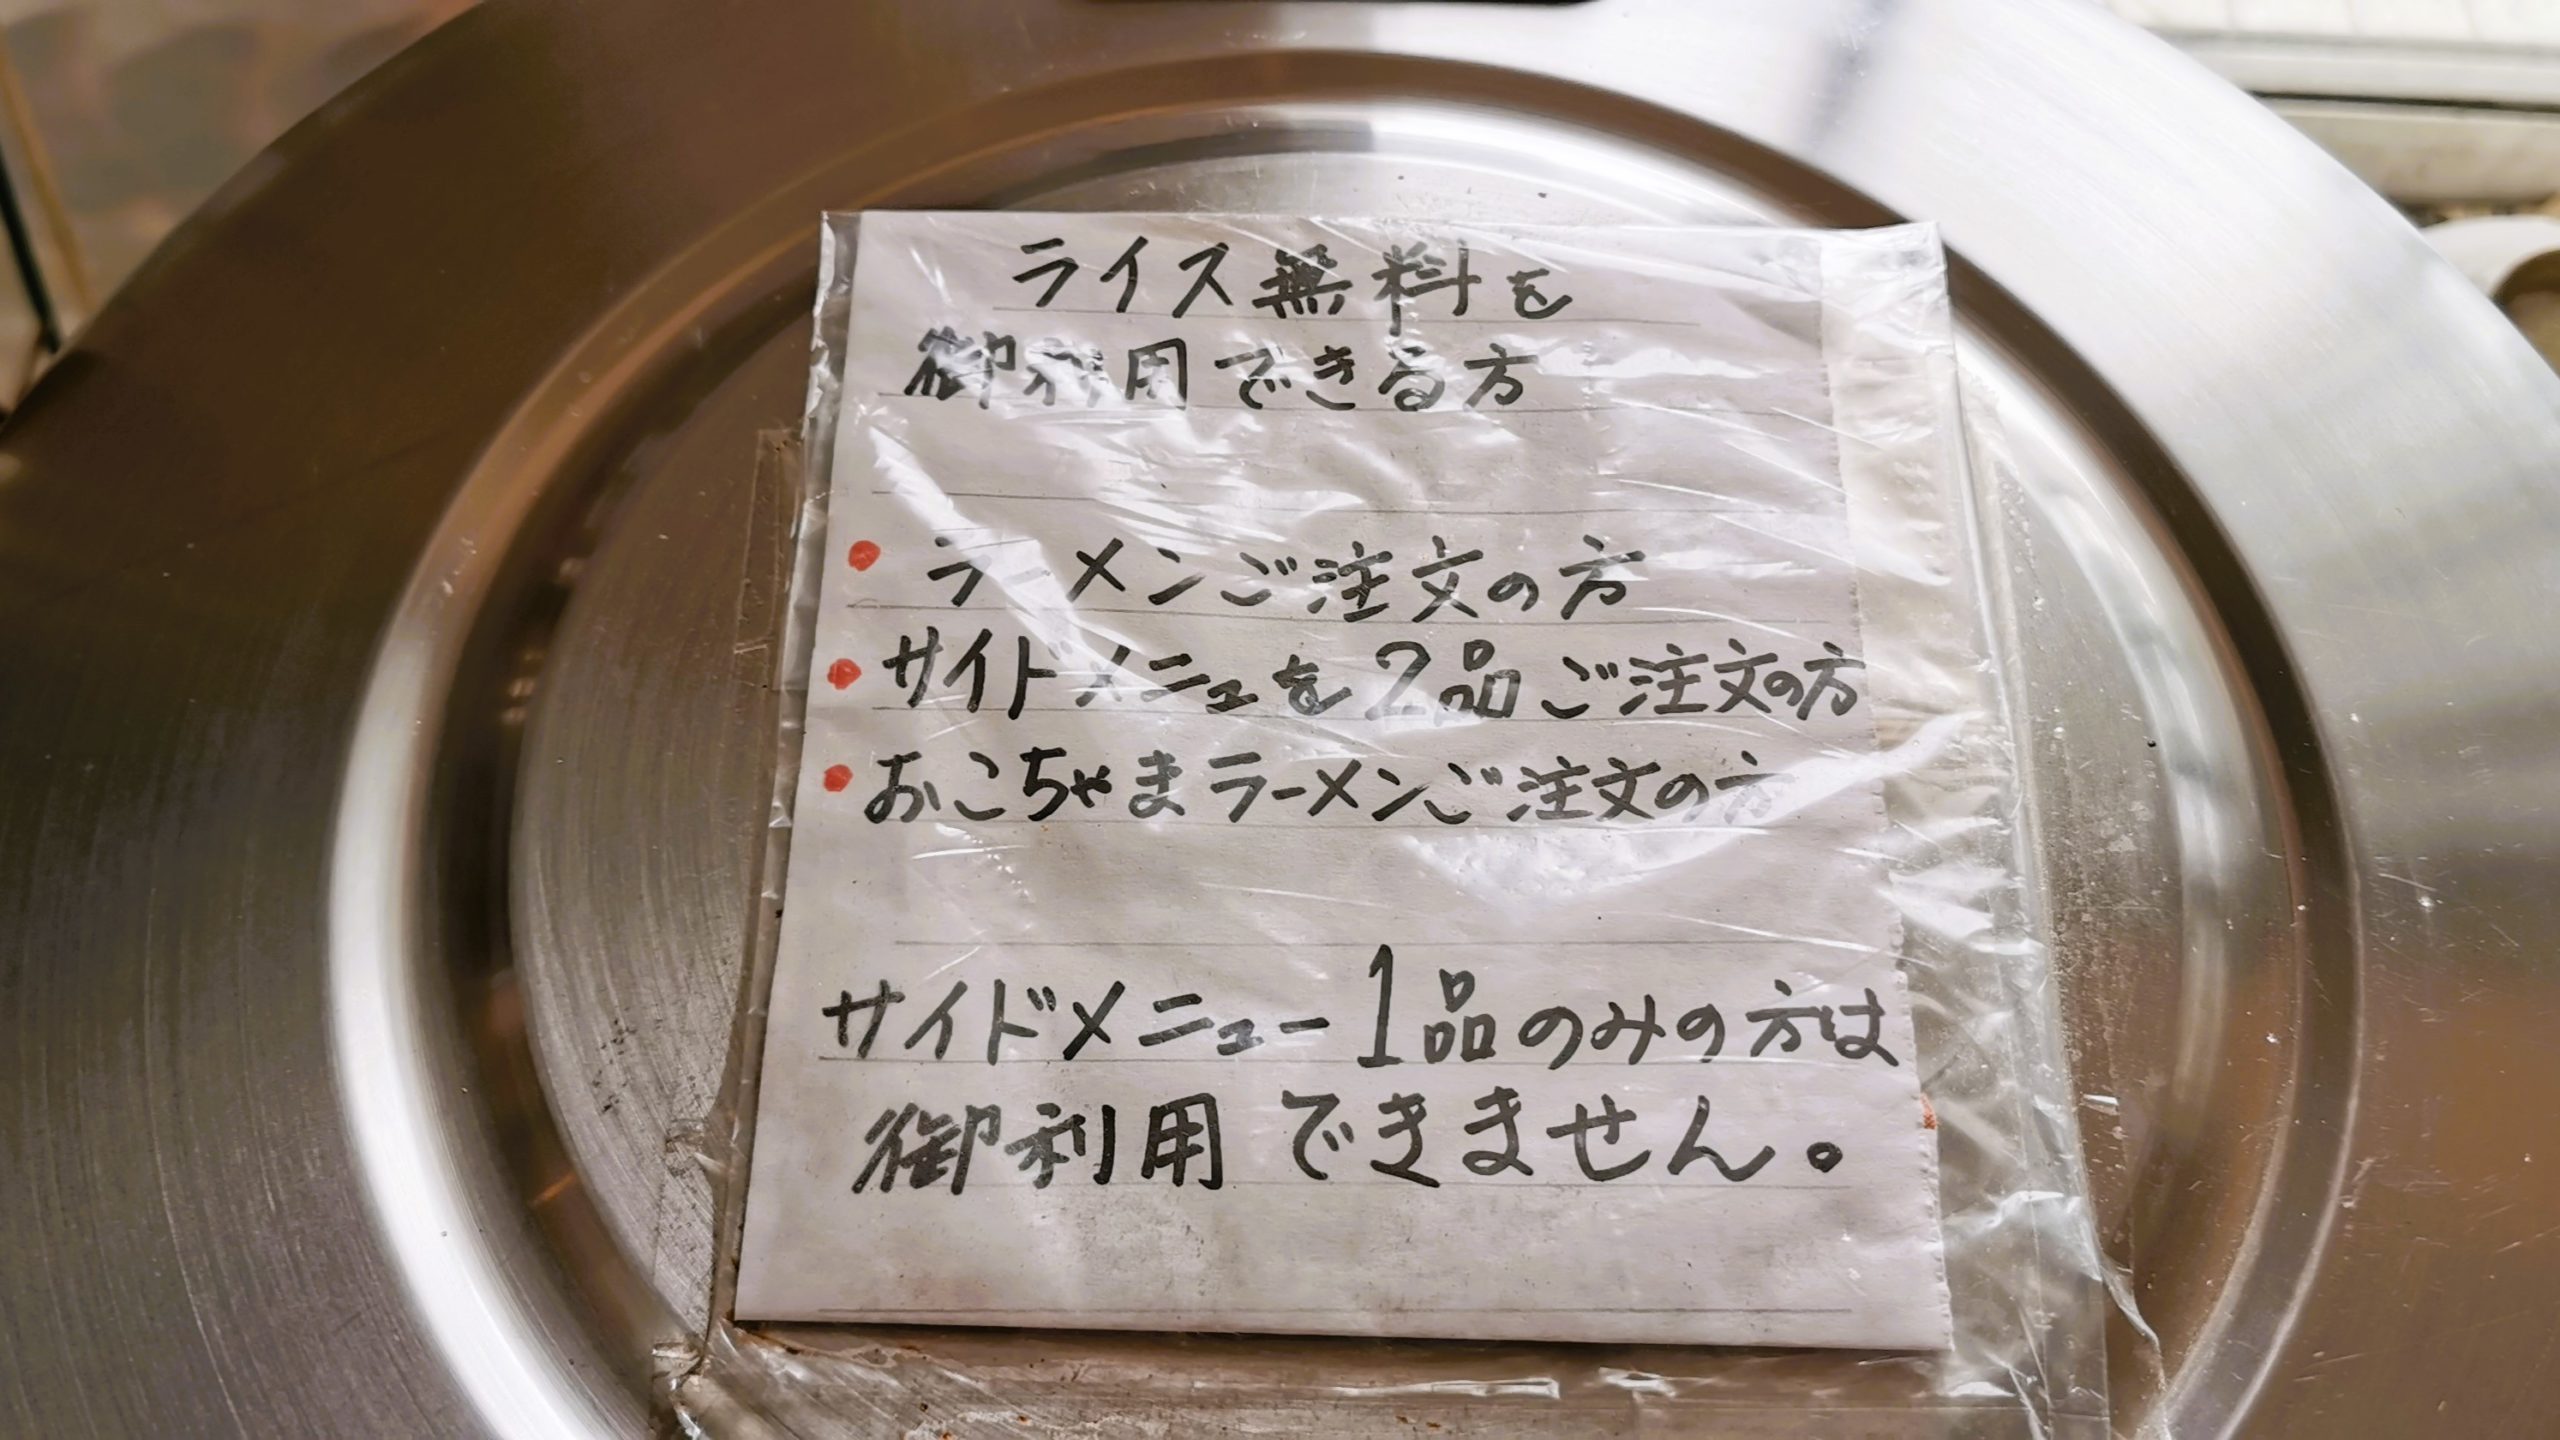 ライス無料を
御利用できる方
• ラーメンご注文の方
• サイドメニュを2品ご注文の方
• おこちゃまラーメンご注文の方
サイドメニュー1品のみの方は
御利用できません。